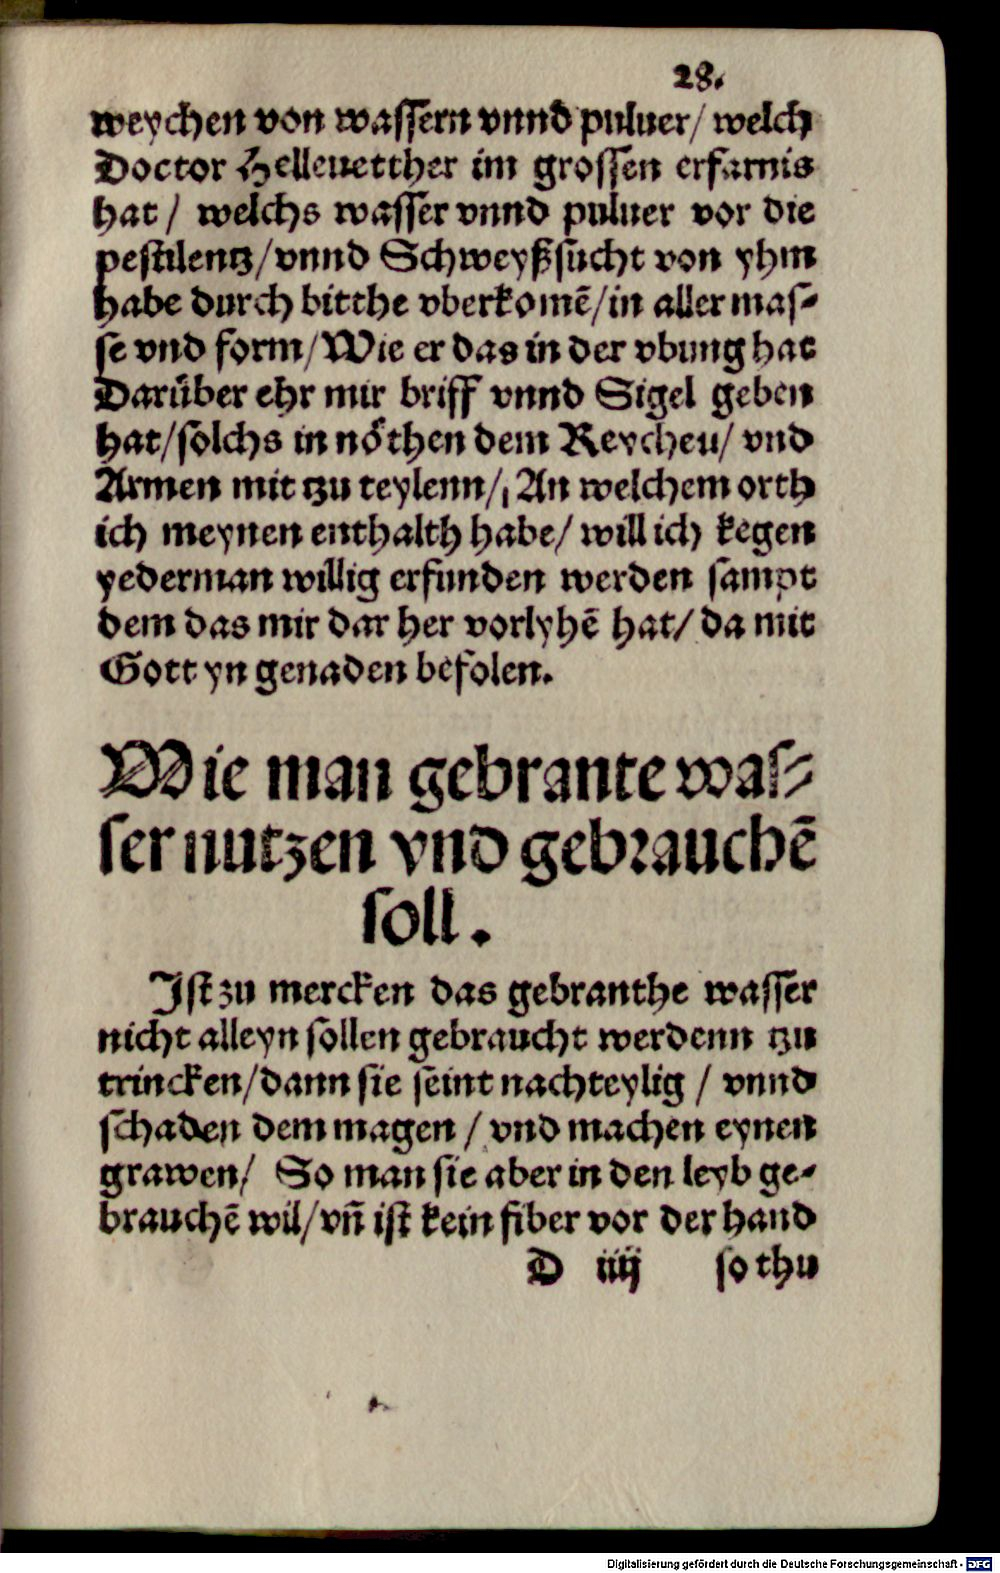 28.
weychen von wassern vnnd puluer/ welch
Doctor Helleuetther im grossen erfarnis
hat/ welchs wasser vnnd puluer vor die
pestilentz/vnnd Schweyßsucht von yhm
habe durch bitthe vberkomē/in aller mas-
se vnd form/Wie er das in der vbung hat
Darüber ehr mir briff vnnd Sigel geben
hat/solchs in nöthen dem Reycheu/ vnd
Armen mit tzu teylenn/ An welchem orth
ich meynen enthalth habe/ will ich kegen
yederman willig erfunden werden sampt
dem das mir dar her vorlyhē hat/ da mit
Gott yn genaden befolen.
Wie man gebrante was-
ser nutzen vnd gebrauchē
soll.
Ist zu mercken das gebranthe wasser
nicht alleyn sollen gebraucht werdenn tzu
trincken/dann sie seint nachteylig / vnnd
schaden dem magen / vnd machen eynen
grawen/ So man sie aber in den leyb ge-
brauchē wil/vñ ist kein fiber vor der hand
D iiij so thu
Digitalisierung gefördert durch die Deutsche Forschungsgemeinschaft - DFG